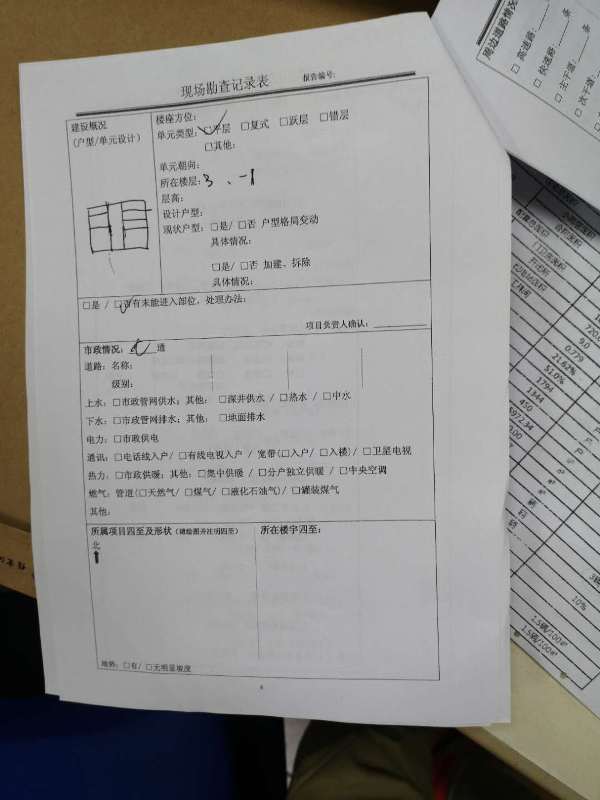 现场勘查记录表 报告编号:
建设概况
(户型/单元设计)
楼座方位:
单元类型: □平层 □复式 □跃层 □错层
□其他:
单元朝向:
所在楼层: 3 、-1
层高:
设计户型:
现状户型: □是/ □否 户型格局变动
具体情况:
□是/ □否 加建、拆除
具体情况:
□是 / □否有未能进入部位, 处理办法:
项目负责人确认:
市政情况: 七 通
道路: 名称:
级别:
上水: □市政管网供水; 其他: □深井供水 / □热水 / □中水
下水: □市政管网排水; 其他: □地面排水
电力: □市政供电
通讯: □电话线入户/ □有线电视入户 / 宽带(□入户/ □入楼)/ □卫星电视
热力: □市政供暖; 其他: □集中供暖 / □分户独立供暖 / □中央空调
燃气: 管道(□天然气/ □煤气/ □液化石油气)/ □罐装煤气
其他:
所属项目四至及形状 (请绘图并注明四至)
所在楼宇四至:
北
地势: □有/ □无明显坡度
周边道路情况
□ 高速路: 条
□ 快速路: 条
□ 主干道: 条
□ 次干道:
9.0
0.779
21.62%
51.0%
1794
1344
450
10%
1.5辆/100㎡
1.5辆/100㎡